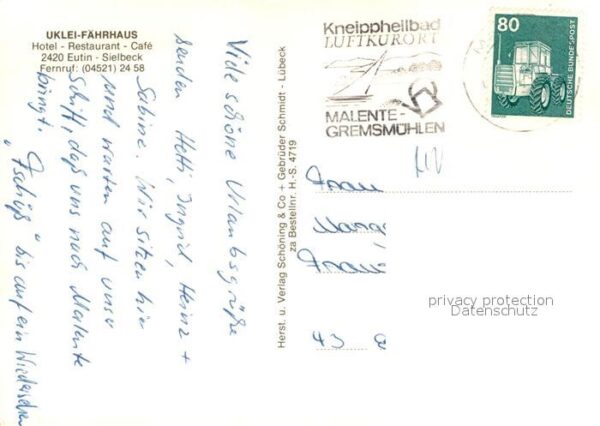 UKLEI-FÄHRHAUS
Hotel - Restaurant - Café
2420 Eutin - Sielbeck
Fernruf: (04521) 24 58
Viele schöne Urlaubsgrüße
senden Hotti, Ingrid, Heinz +
Sabine. Wir sitzen hier
und warten auf unser
Schiff, daß uns nach Malente
bringt.
"Tschüß" bis auf ein Wiedersehen
Herst. u. Verlag Schöning & Co + Gebrüder Schmidt - Lübeck
za Bestellnr. H.-S. 4719
Kneippheilbad
LUFTKURORT
MALENTE-
GREMSMÜHLEN
80
DEUTSCHE BUNDESPOST
Frau
43
privacy protection
Datenschutz